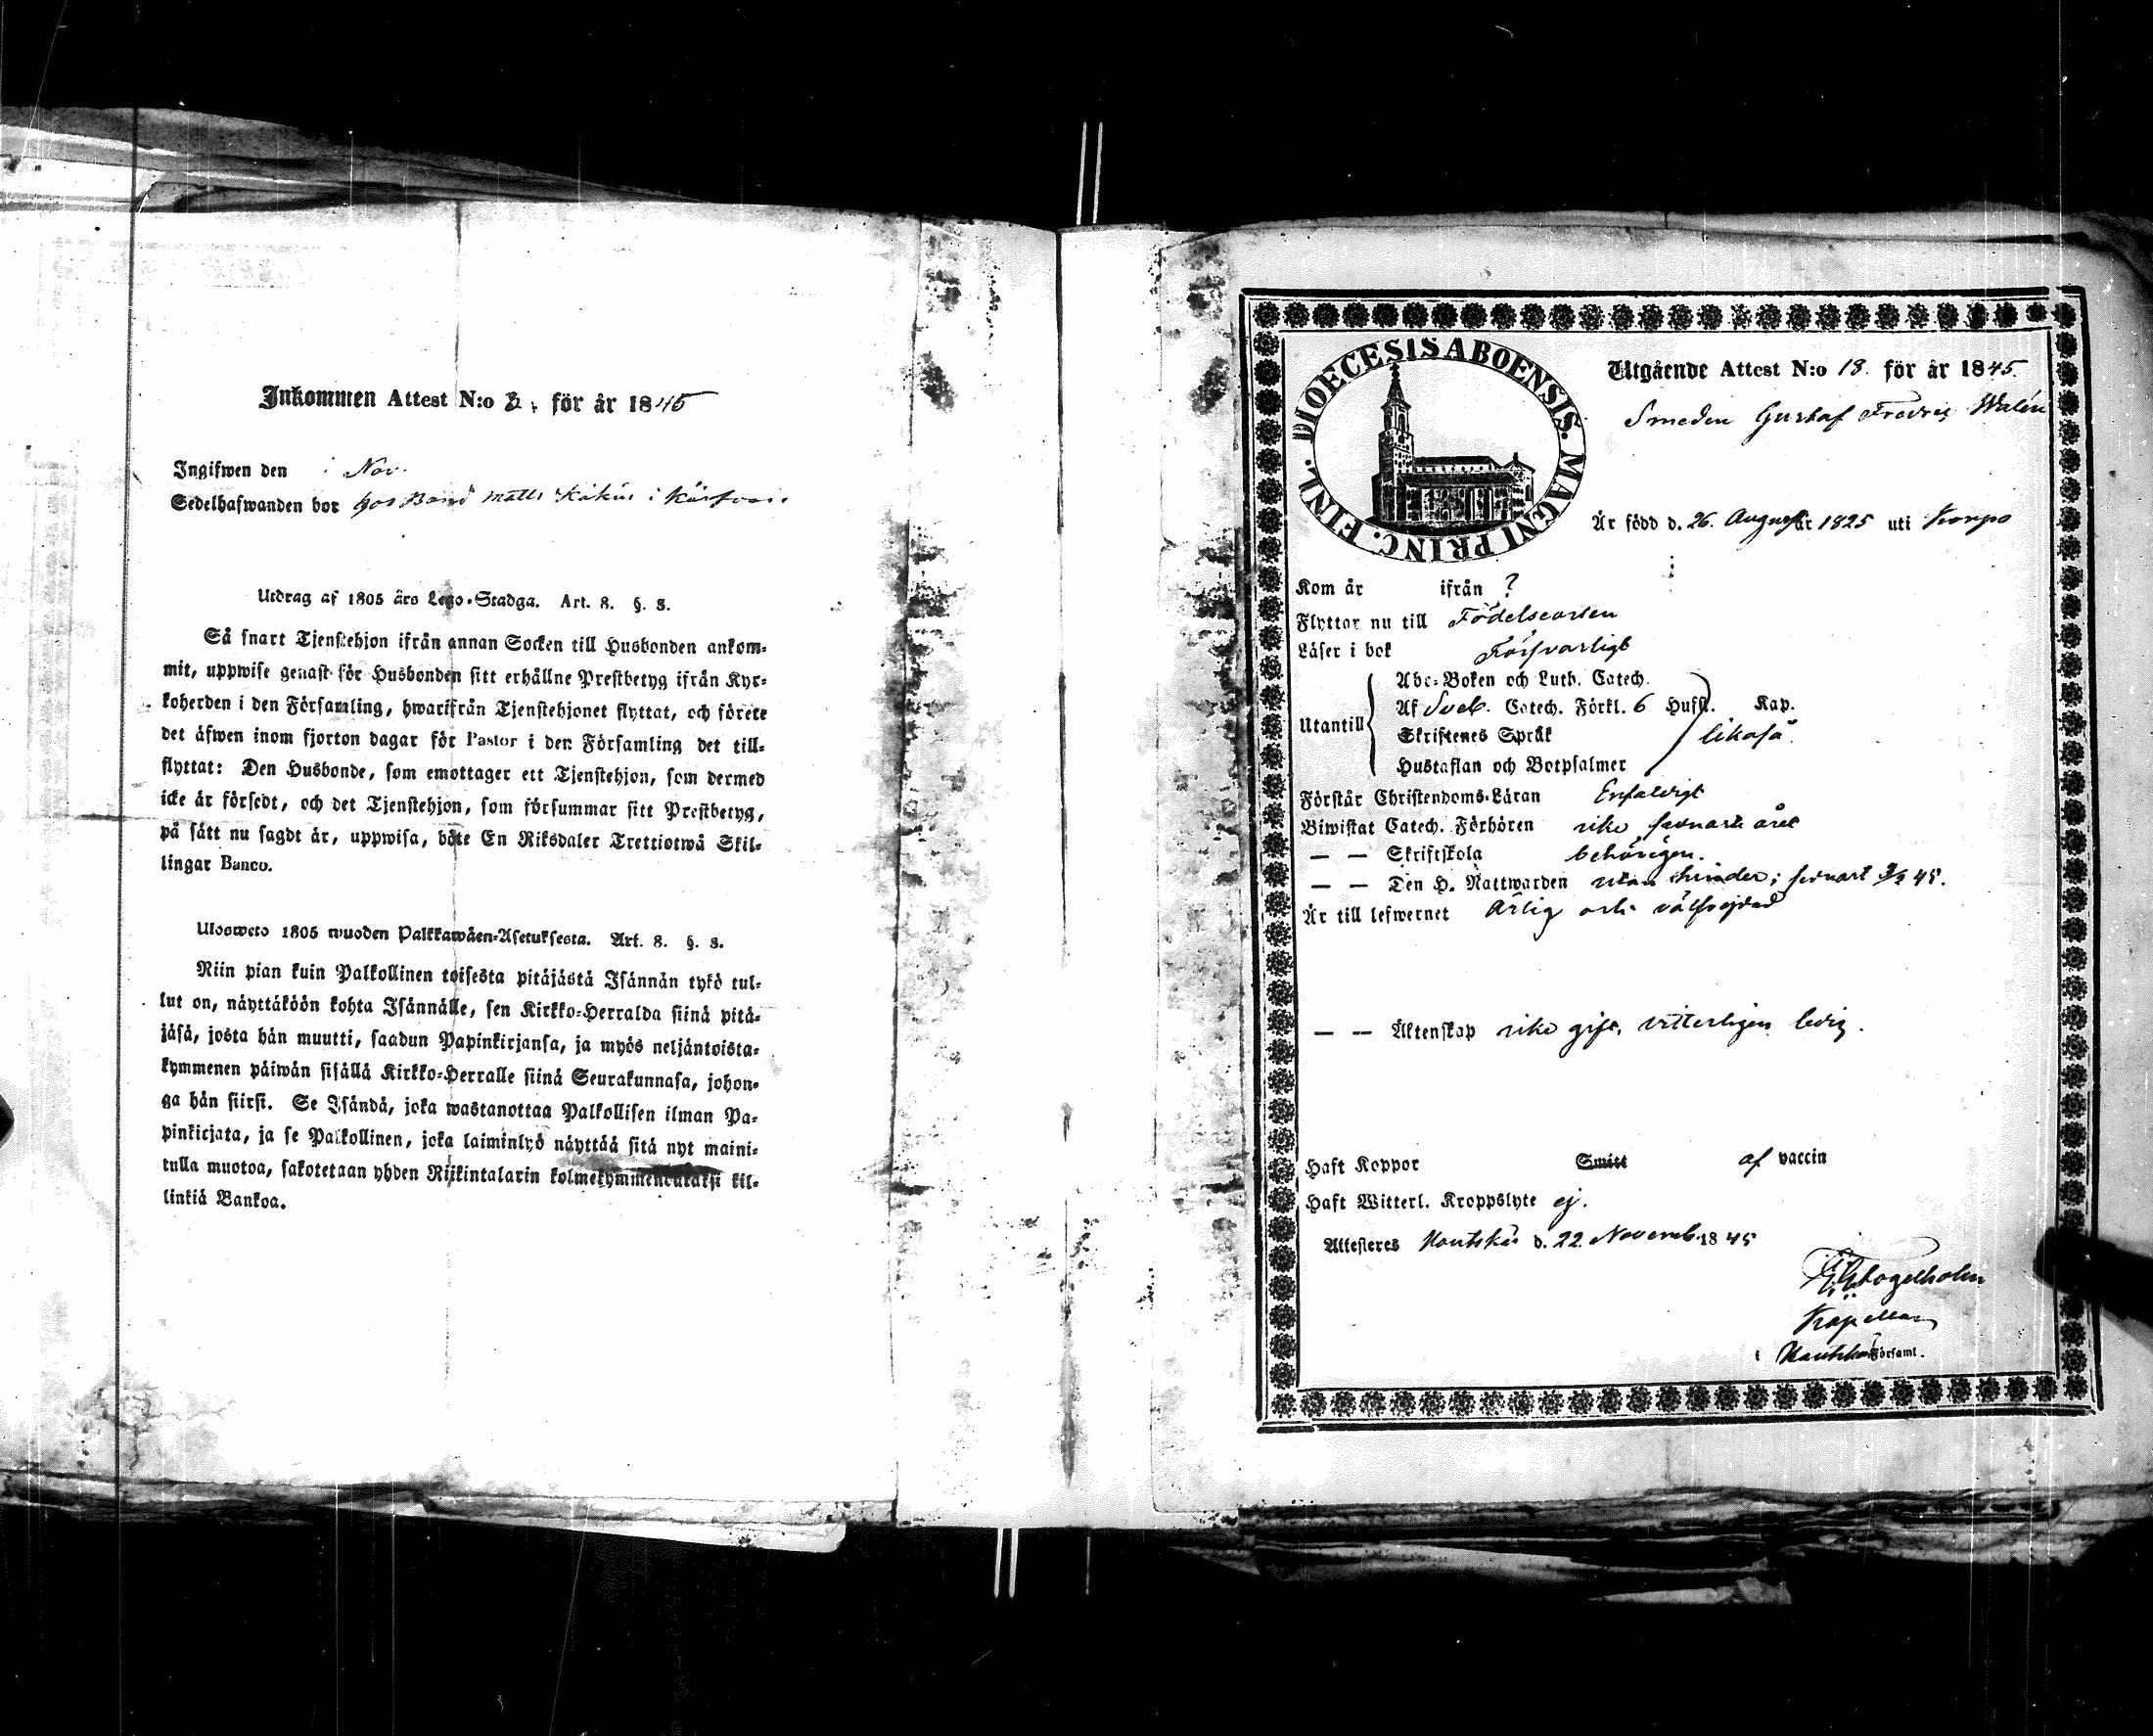 Inkommen Attest N:o 3. för år 1845
Ingifwen den i Nov.
Sedelhafwanden bor hos Bond Matts i
Utdrag af 1805 års Lego-Stadga. Art. 8. §. 3.
Så snart Tjenstehjon ifrån annan Socken till Husbonden ankom-
mit, uppwise genast för Husbonden sitt erhållne Prestbetyg ifrån Kyr-
koherden i den Församling, hwarifrån Tjenstehjonet flyttat, och förete
det äfwen inom fjorton dagar för Pastor i den Församling det till-
flyttat: Den Husbonde, som emottager ett Tjenstehjon, som dermed
icke är försedt, och det Tjenstehjon, som försummar sitt Prestbetyg,
på sätt nu sagdt är, uppwisa, böte En Riksdaler Trettiotwå Skil-
lingar Banco.
Ulosweto 1805 wuoden Palkkawäen-Asetuksesta. Art. 8. §. 3.
Niin pian kuin Palkollinen toisesta pitäjästä Isännän tykö tul-
lut on, näyttäköön kohta Isännälle, sen Kirkko-Herralda siinä pitä-
jäsä, josta hän muutti, saadun Papinkirjansa, ja myös neljäntoista-
kymmenen päiwän sisällä Kirkko-Herralle siinä Seurakunnasa, johon-
ga hän siirsi. Se Isändä, joka wastanottaa Palkollisen ilman Pa-
pinkirjata, ja se Palkollinen, joka laiminlyö näyttää sitä nyt maini-
tulla muotoa, sakotetaan yhden Riikintalarin kolmekymmendukaksi kil-
linkiä Bankoa.
DIOECESIS ABOENSIS. MAGNI PRINC. FINL.
Utgående Attest N:o 18. för år 1845.
Smeden Gustaf Fredric Walén
Är född d. 26. August år 1825 uti Korpo
Kom år ifrån ?
Flyttar nu till Födelseorten
Läser i bok Försvarligt
Utantill
Abc-Boken och Luth. Catech.
Af Sveb. Catech. Förkl. 6 Hufst. Kap.
Skriftenes Språk likaså.
Hustaflan och Botpsalmer
Förstår Christendoms-Läran Enfaldigt
Biwistat Catech. Förhören sednaste året
— — Skriftskola behörigen.
— — Den H. Nattwarden utan hinder; sednast 45.
Är till lefwernet Ärlig och välfrejdad
— — Äktenskap icke gift, vitterligen ledig.
Haft Koppor Smitt af vaccin
Haft Witterl. Kroppslyte ej.
Attesteres Houtskär d. 22. Novemb. 1845
Fogelholm
Kapellan
i Houtskär Församl.